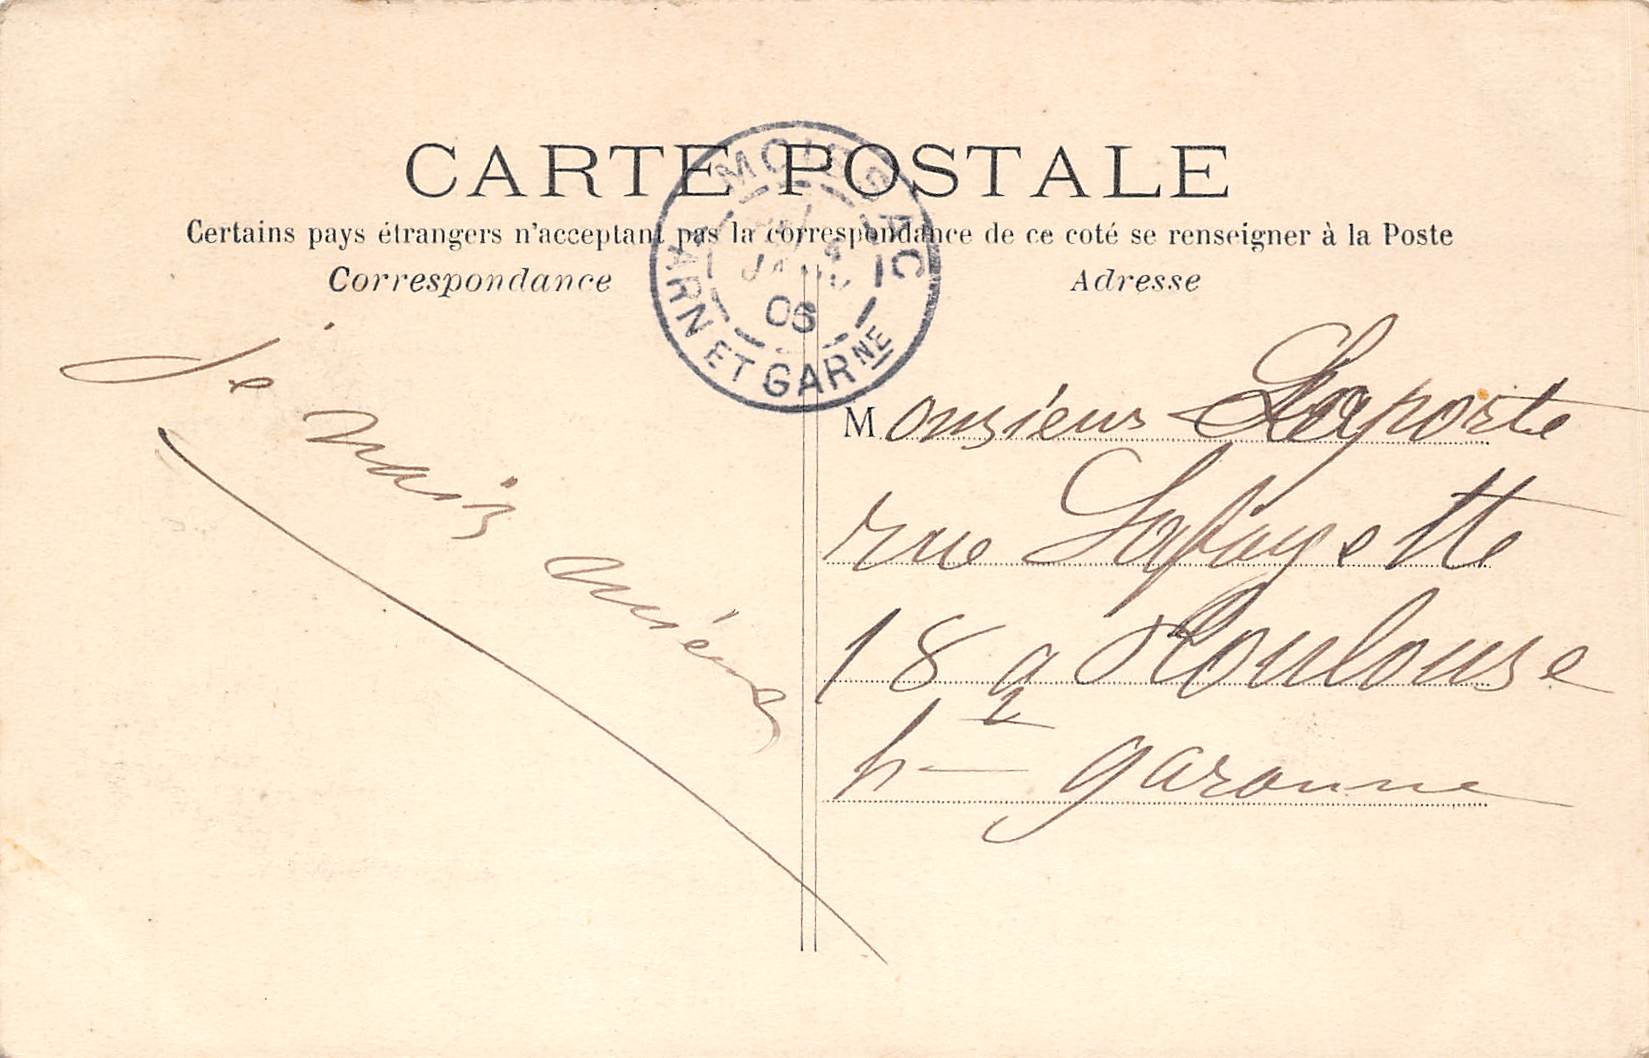 CARTE POSTALE
Certains pays étrangers n'acceptant pas la correspondance de ce coté se renseigner à la Poste
Correspondance
Adresse
MOISSAC
JANV
06
TARN ET GARNE
Je
Monsieur Laporte
rue Lafayette
18 a Toulouse
hte garonne